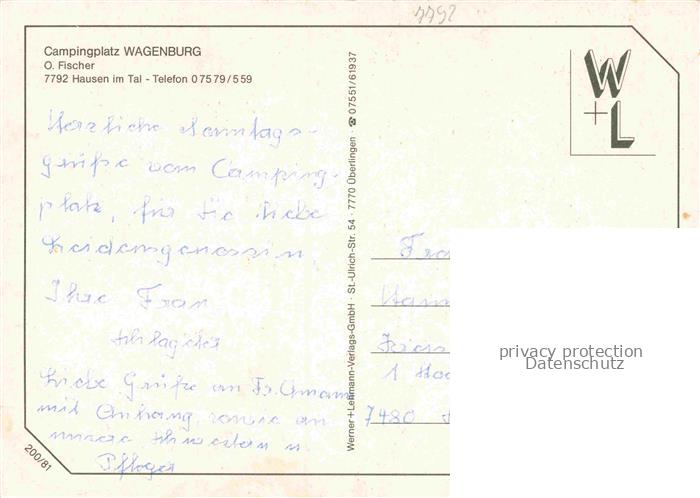 7792
Campingplatz WAGENBURG
O. Fischer
7792 Hausen im Tal - Telefon 07579/559
W
+L
Herzliche Sonntags-
grüße vom Camping-
platz, für Sie liebe
Leidensgenossin.
Ihre Frau
Schlageter
Liebe Grüße an Fr. Amann
mit Anhang, sowie an
unsere Schwestern u.
Pfleger
200/81
Werner+Lehmann-Verlags-GmbH · St.-Ulrich-Str. 54 · 7770 Überlingen · ☎ 07551/61937
Fra
Hann
1 Hoc
7480
privacy protection
Datenschutz